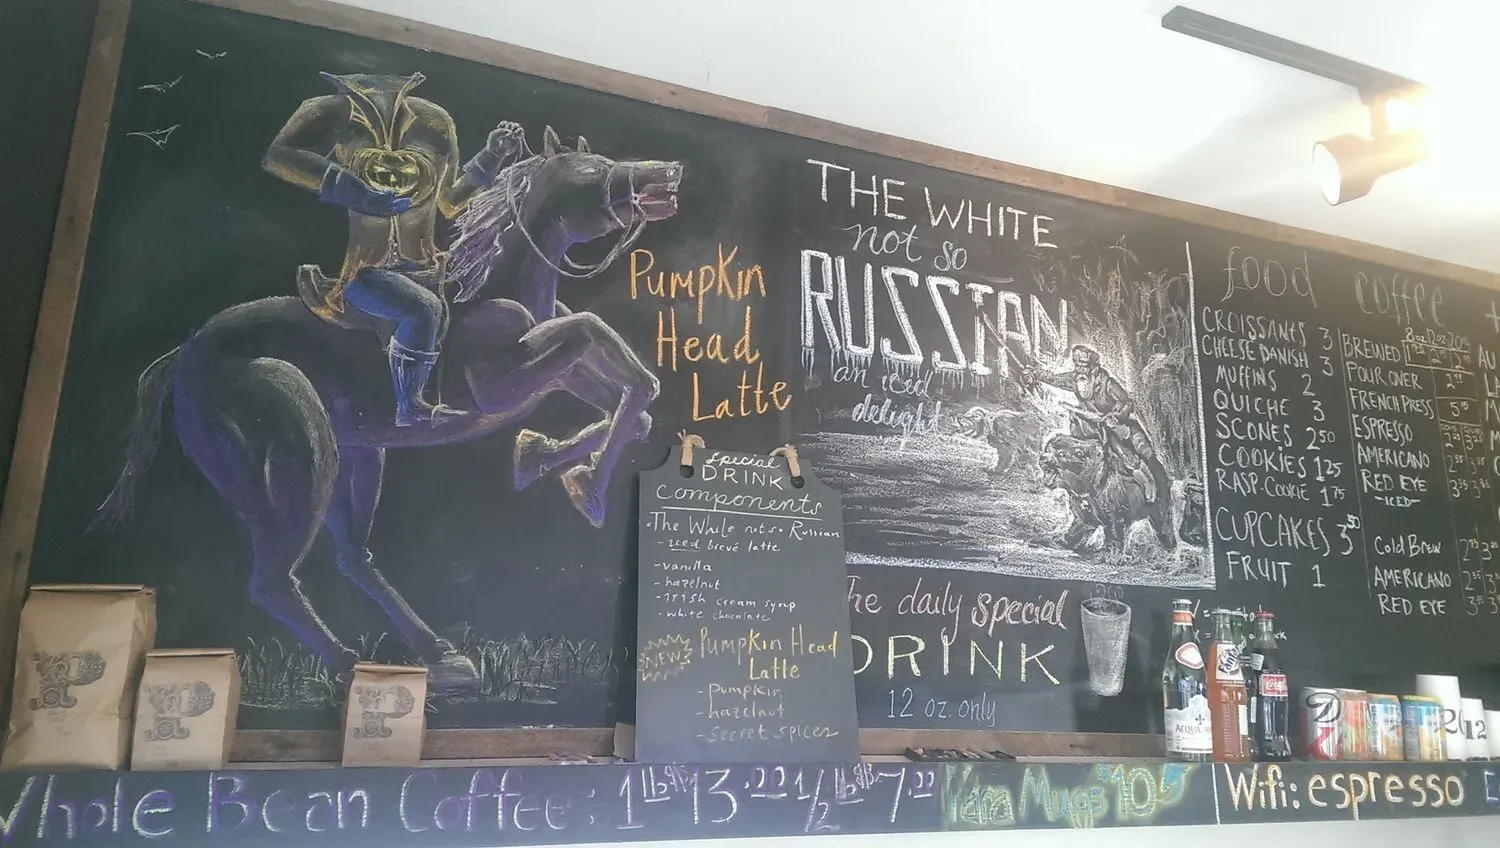 Pumpkin
Head
Latte
THE WHITE
not so
RUSSIAN
an iced
delight
Special
DRINK
components
The White not so Russian
- iced brevé latte
- vanilla
- hazelnut
- irish cream syrup
- white chocolate
NEW
Pumpkin Head
Latte
- pumpkin
- hazelnut
- secret spices
The daily special
DRINK
12 oz. only
food
CROISSANTS 3
CHEESE DANISH 3
MUFFINS 2
QUICHE 3
SCONES 2.50
COOKIES 1.25
RASP. COOKIE 1.75
CUPCAKES 3.50
FRUIT 1
coffee
8oz 12oz 20oz
BREWED
POUR OVER
FRENCH PRESS
ESPRESSO
AMERICANO
RED EYE
- ICED -
COLD BREW
AMERICANO
RED EYE
ACQUA
Fanta
Coca-Cola
12
Whole Bean Coffee: 1 lb 13.00 1/2 lb 7.00
Mugs $10
Wifi: espresso